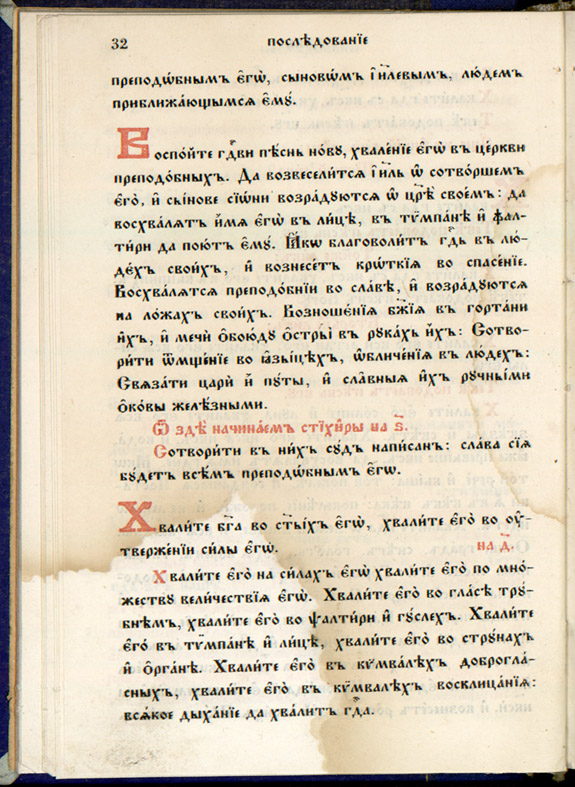 32 послѣ́дованїе
преподѡ́бнымъ є҆гѡ̀, сыновѡ́мъ і҆и҃левымъ, лю́демъ
приближа́ющымсѧ є҆мꙋ̀.
Воспо́йте гдⷭ҇ви пѣ́снь но́вꙋ, хвале́нїе є҆гѡ̀ въ це́ркви
преподо́бныхъ. Да возвесели́тсѧ і҆и҃ль ѡ҆ сотво́ршемъ
є҆го̀, и҆ сы́нове сїѡ́ни возра́дꙋютсѧ ѡ҆ цр҃ѣ̀ свое́мъ: да
восхва́лѧтъ и҆́мѧ є҆гѡ̀ въ ли́цѣ, въ тѷмпа́нѣ и҆ ѱал-
ти́ри да пою́тъ є҆мꙋ̀. Ꙗ҆́кѡ благоволи́тъ гдⷭ҇ь въ лю́-
дехъ свои́хъ, и҆ вознесе́тъ крѡ́ткїѧ во спасе́нїе.
Восхва́лѧтсѧ преподо́бнїи во сла́вѣ, и҆ возра́дꙋютсѧ
на ло́жахъ свои́хъ. Возношє́нїѧ бж҃їѧ въ горта́ни
и҆́хъ, и҆ мечѝ ѻ҆бою́дꙋ ѻ҆стры̀ въ рꙋка́хъ и҆́хъ: Сотво-
ри́ти ѿмще́нїе во ꙗ҆зы́цѣхъ, ѡ҆бличє́нїѧ въ лю́дехъ:
Свѧза́ти цари̑ и҆́хъ пꙋ́ты, и҆ сла̑вныѧ и҆́хъ рꙋчны́ми
ѻ҆ко́вы желѣ́зными.
Ѿ здѣ̀ начина́емъ стїхи̑ры на ѕ҃.
Сотвори́ти въ ни́хъ сꙋ́дъ напи́санъ: сла́ва сїѧ̀
бꙋ́детъ всѣ̑мъ преподѡ́бнымъ є҆гѡ̀.
Хвали́те бг҃а во ст҃ы́хъ є҆гѡ̀, хвали́те є҆го̀ во ᲂу҆-
тверже́нїи си́лы є҆гѡ̀. на д҃.
Хвали́те є҆го̀ на си́лахъ є҆гѡ̀ хвали́те є҆го̀ по мно́-
жествꙋ вели́чествїѧ є҆гѡ̀. Хвали́те є҆го̀ во гла́сѣ трꙋ́-
бнѣмъ, хвали́те є҆го̀ во ѱалти́ри и҆ гꙋ́слехъ. Хвали́те
є҆го̀ въ тѷмпа́нѣ и҆ ли́цѣ, хвали́те є҆го̀ во стрꙋ́нахъ
и҆ ѻ҆рга́нѣ. Хвали́те є҆го̀ въ кѷмва́лѣхъ доброгла́-
сныхъ, хвали́те є҆го̀ въ кѷмва́лѣхъ восклица́нїѧ:
всѧ́кое дыха́нїе да хва́литъ гдⷭ҇а.